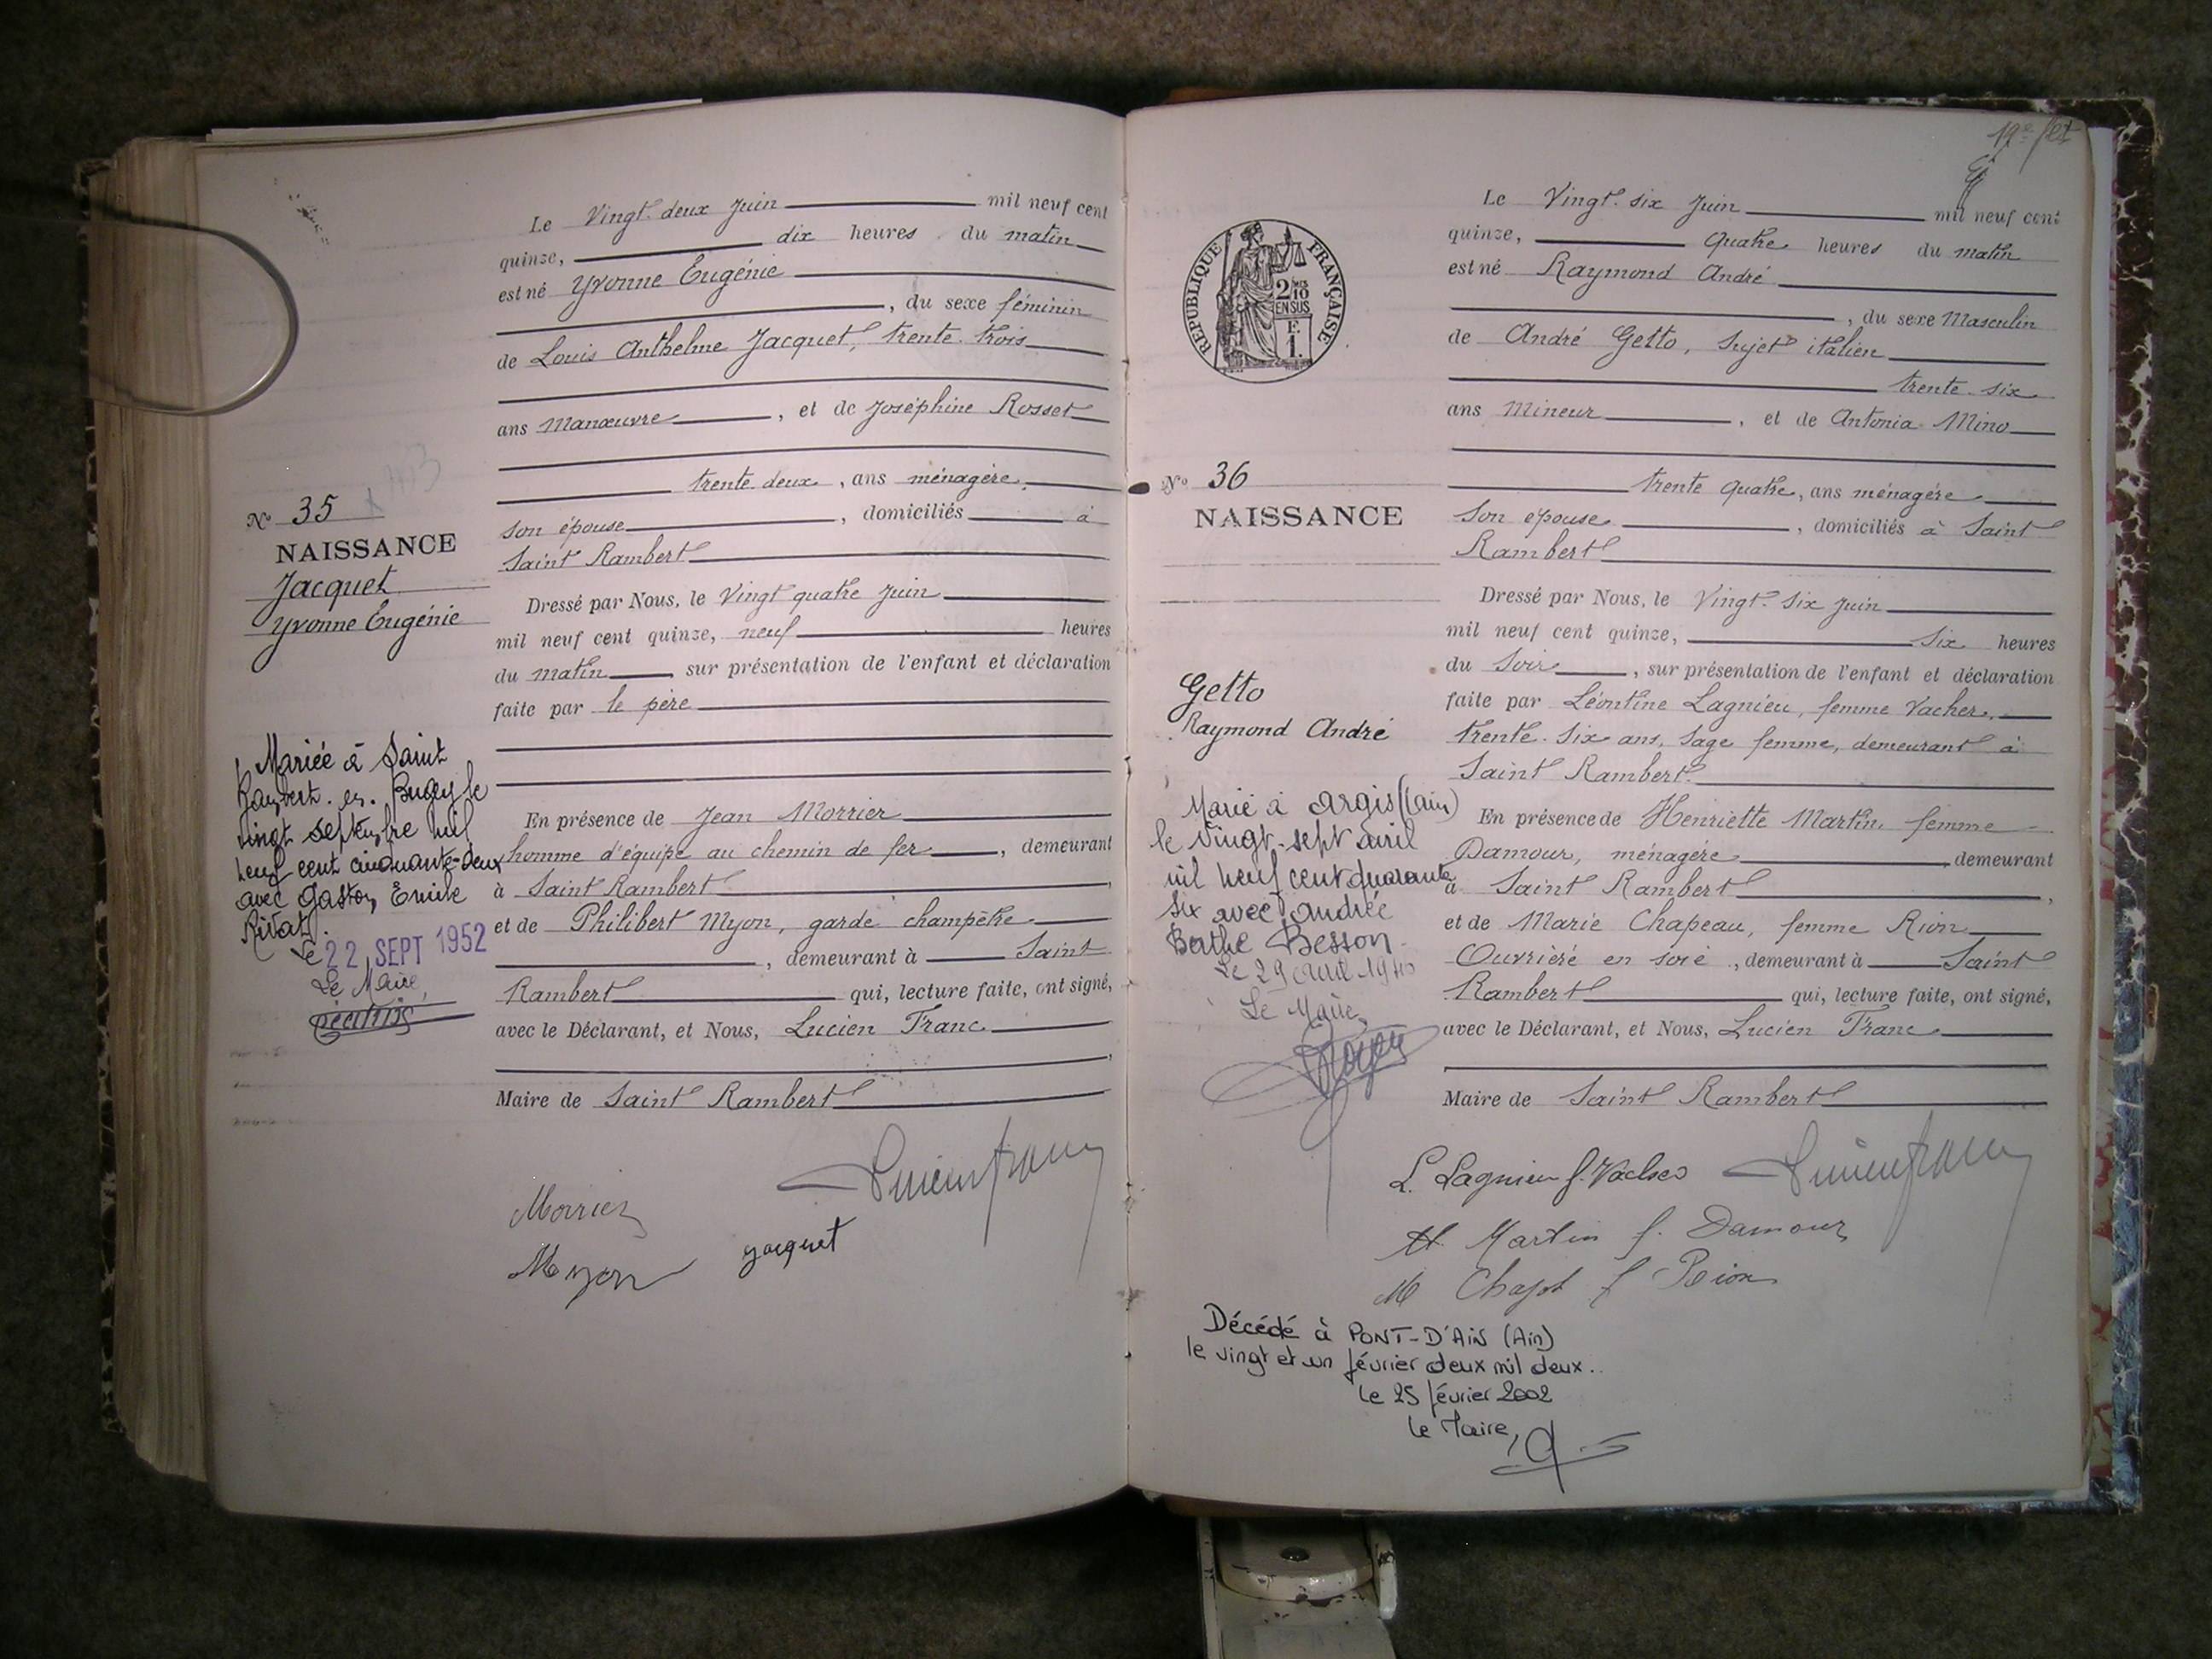 Le Vingt-deux Juin mil neuf cent
quinze, dix heures du matin
est né Yvonne Eugénie
, du sexe féminin
de Louis Anthelme Jacquet, trente-trois
ans Manœuvre, et de Joséphine Rosset
trente-deux, ans ménagère,
son épouse, domiciliés à
Saint Rambert
Dressé par Nous, le Vingt quatre Juin
mil neuf cent quinze, neuf heures
du matin sur présentation de l'enfant et déclaration
faite par le père
En présence de Jean Morrier
homme d'équipe au chemin de fer, demeurant
à Saint Rambert,
et de Philibert Myon, garde champêtre
, demeurant à Saint
Rambert qui, lecture faite, ont signé,
avec le Déclarant, et Nous, Lucien Franc
,
Maire de Saint Rambert
Lucien Franc
Morrier
Myon Jacquet
N° 35
NAISSANCE
Jacquet
Yvonne Eugénie
Mariée à Saint
Rambert-en-Bugey le
vingt septembre mil
neuf cent cinquante-deux
avec Gaston Emile
Rivat.
Le 22 SEPT 1952
Le Maire,
19e
Le Vingt-six Juin mil neuf cent
quinze, quatre heures du matin
est né Raymond André
, du sexe Masculin
de André Getto, sujet italien
trente-six
ans Mineur, et de Antonia Mino
trente quatre, ans ménagère
son épouse, domiciliés à Saint
Rambert
Dressé par Nous, le Vingt-six Juin
mil neuf cent quinze, six heures
du soir, sur présentation de l'enfant et déclaration
faite par Léontine Lagnieu, femme Vacher,
trente-six ans, sage femme, demeurant à
Saint Rambert
En présence de Henriette Martin, femme
Damour, ménagère demeurant
à Saint Rambert,
et de Marie Chapeau, femme Rion
Ouvrière en soie, demeurant à Saint
Rambert qui, lecture faite, ont signé,
avec le Déclarant, et Nous, Lucien Franc
Maire de Saint Rambert
L. Lagnieu f. Vacher Lucien Franc
H. Martin f. Damour
M Chapot f Rion
RÉPUBLIQUE FRANÇAISE
2/10
EN SUS
F.
1.
N° 36
NAISSANCE
Getto
Raymond André
Marié à Argis (Ain)
le vingt-sept avril
mil neuf cent quarante
six avec Andrée
Berthe Besson
Le 29 avril 1946
Le Maire,
Décédé à PONT-D'AIN (Ain)
le vingt et un février deux mil deux..
Le 25 février 2002
Le Maire,